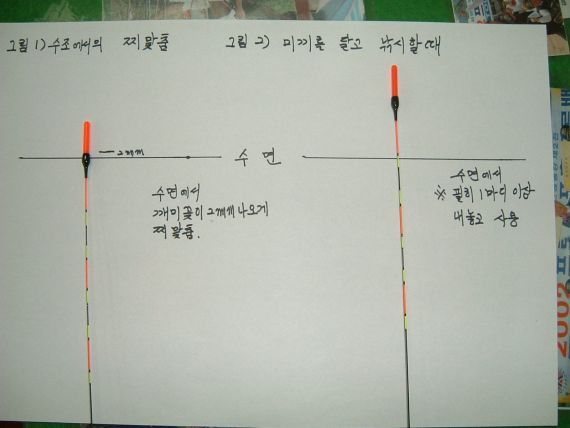 그림 1) 수조에서의 찌맞춤
그림 2) 미끼를 달고 낚시할때
2mm
수 면
수면에서
케미꽂이 2mm 나오게
찌맞춤.
수면에서
※ 필히 1마디 이상
내놓고 사용
2002